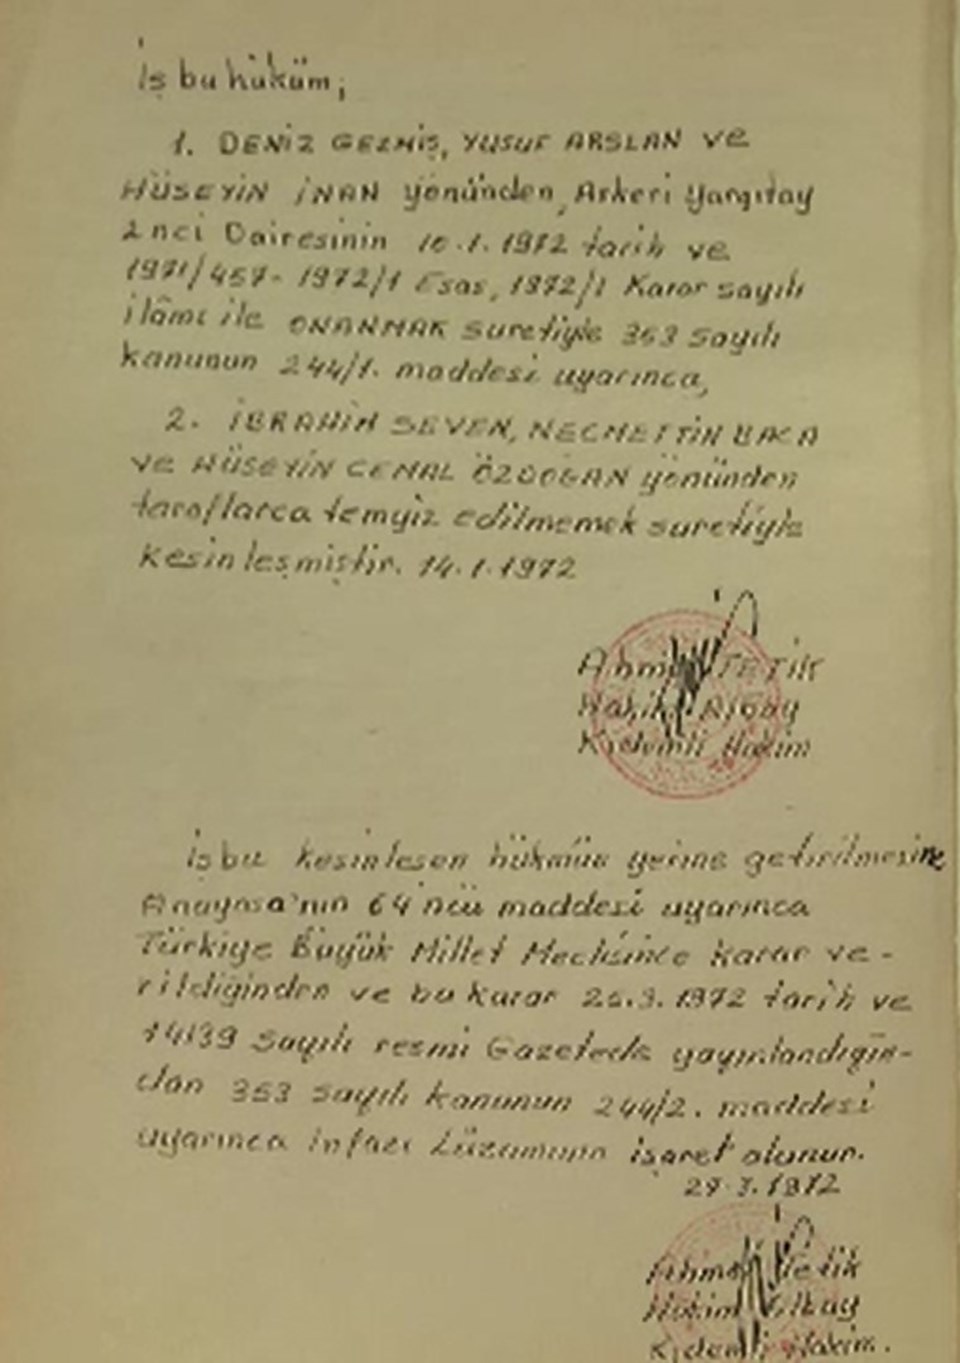 İş bu hüküm;
1. DENİZ GEZMİŞ, YUSUF ARSLAN ve
HÜSEYİN İNAN yönünden, Askeri Yargıtay
2 nci Dairesinin 10.1.1972 tarih ve
1971/457- 1972/1 Esas, 1972/1 Karar sayılı
ilâmı ile ONANMAK suretiyle 353 sayılı
kanunun 244/1. maddesi uyarınca,
2. İBRAHİM SEVEN, NECMETTİN BACA
ve HÜSEYİN CEMAL ÖZDOĞAN yönünden
taraflarca temyiz edilmemek suretiyle
kesinleşmiştir. 14.1.1972
Ahmet TETİK
Hakim Albay
Kıdemli Hakim
işbu kesinleşen hükmün yerine getirilmesine
Anayasa'nın 64 ncü maddesi uyarınca
Türkiye Büyük Millet Meclisince karar ve-
rildiğinden ve bu karar 25.3.1972 tarih ve
14139 sayılı resmi Gazetede yayınlandığın-
dan 353 sayılı kanunun 244/2. maddesi
uyarınca infazı Lüzumuna işaret olunur.
27.3.1972
Ahmet Tetik
Hakim Albay
Kıdemli Hakim.